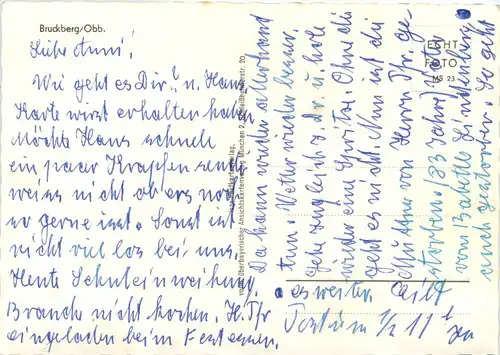 Bruckberg/Obb.
Liebe Anni!
Wie geht es Dir? u. Hans,
Karte wirst erhalten haben
Möchte Hans schnell
ein paar Krapfen senden
weiss nicht ob ers noch
so gerne isst. Sonst ist
nicht viel los bei uns.
Heute Schuleinweihung
Brauche nicht kochen. H. Pfr
eingeladen beim Festessen.
Da kann wieder allerhand
tun. Wetter wieder besser.
gehe zugleich z. Dr. u. hole
wieder eine Spritze. Ohne die
geht es nicht. Nun ist die
Mutter von Herrn Pfr. ge-
storben. (83 Jahre)
vom Babette
auch gestorben. So geht
es weiter.
1/2 11
ECHT
FOTO
MS 23
Oberbayerischer Ansichtskartenverlag, München 2